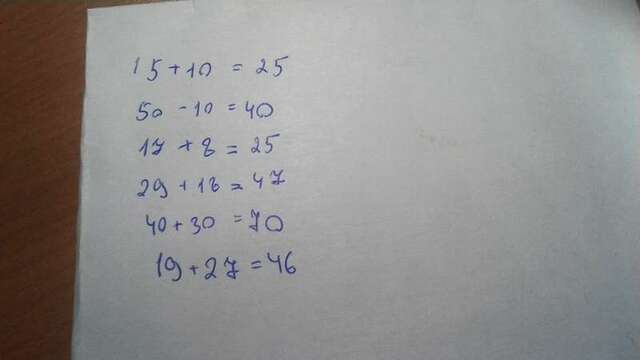 15+10 = 25
50 - 10 = 40
17 + 8 = 25
29 + 18 = 47
40 + 30 = 70
19 + 27 = 46